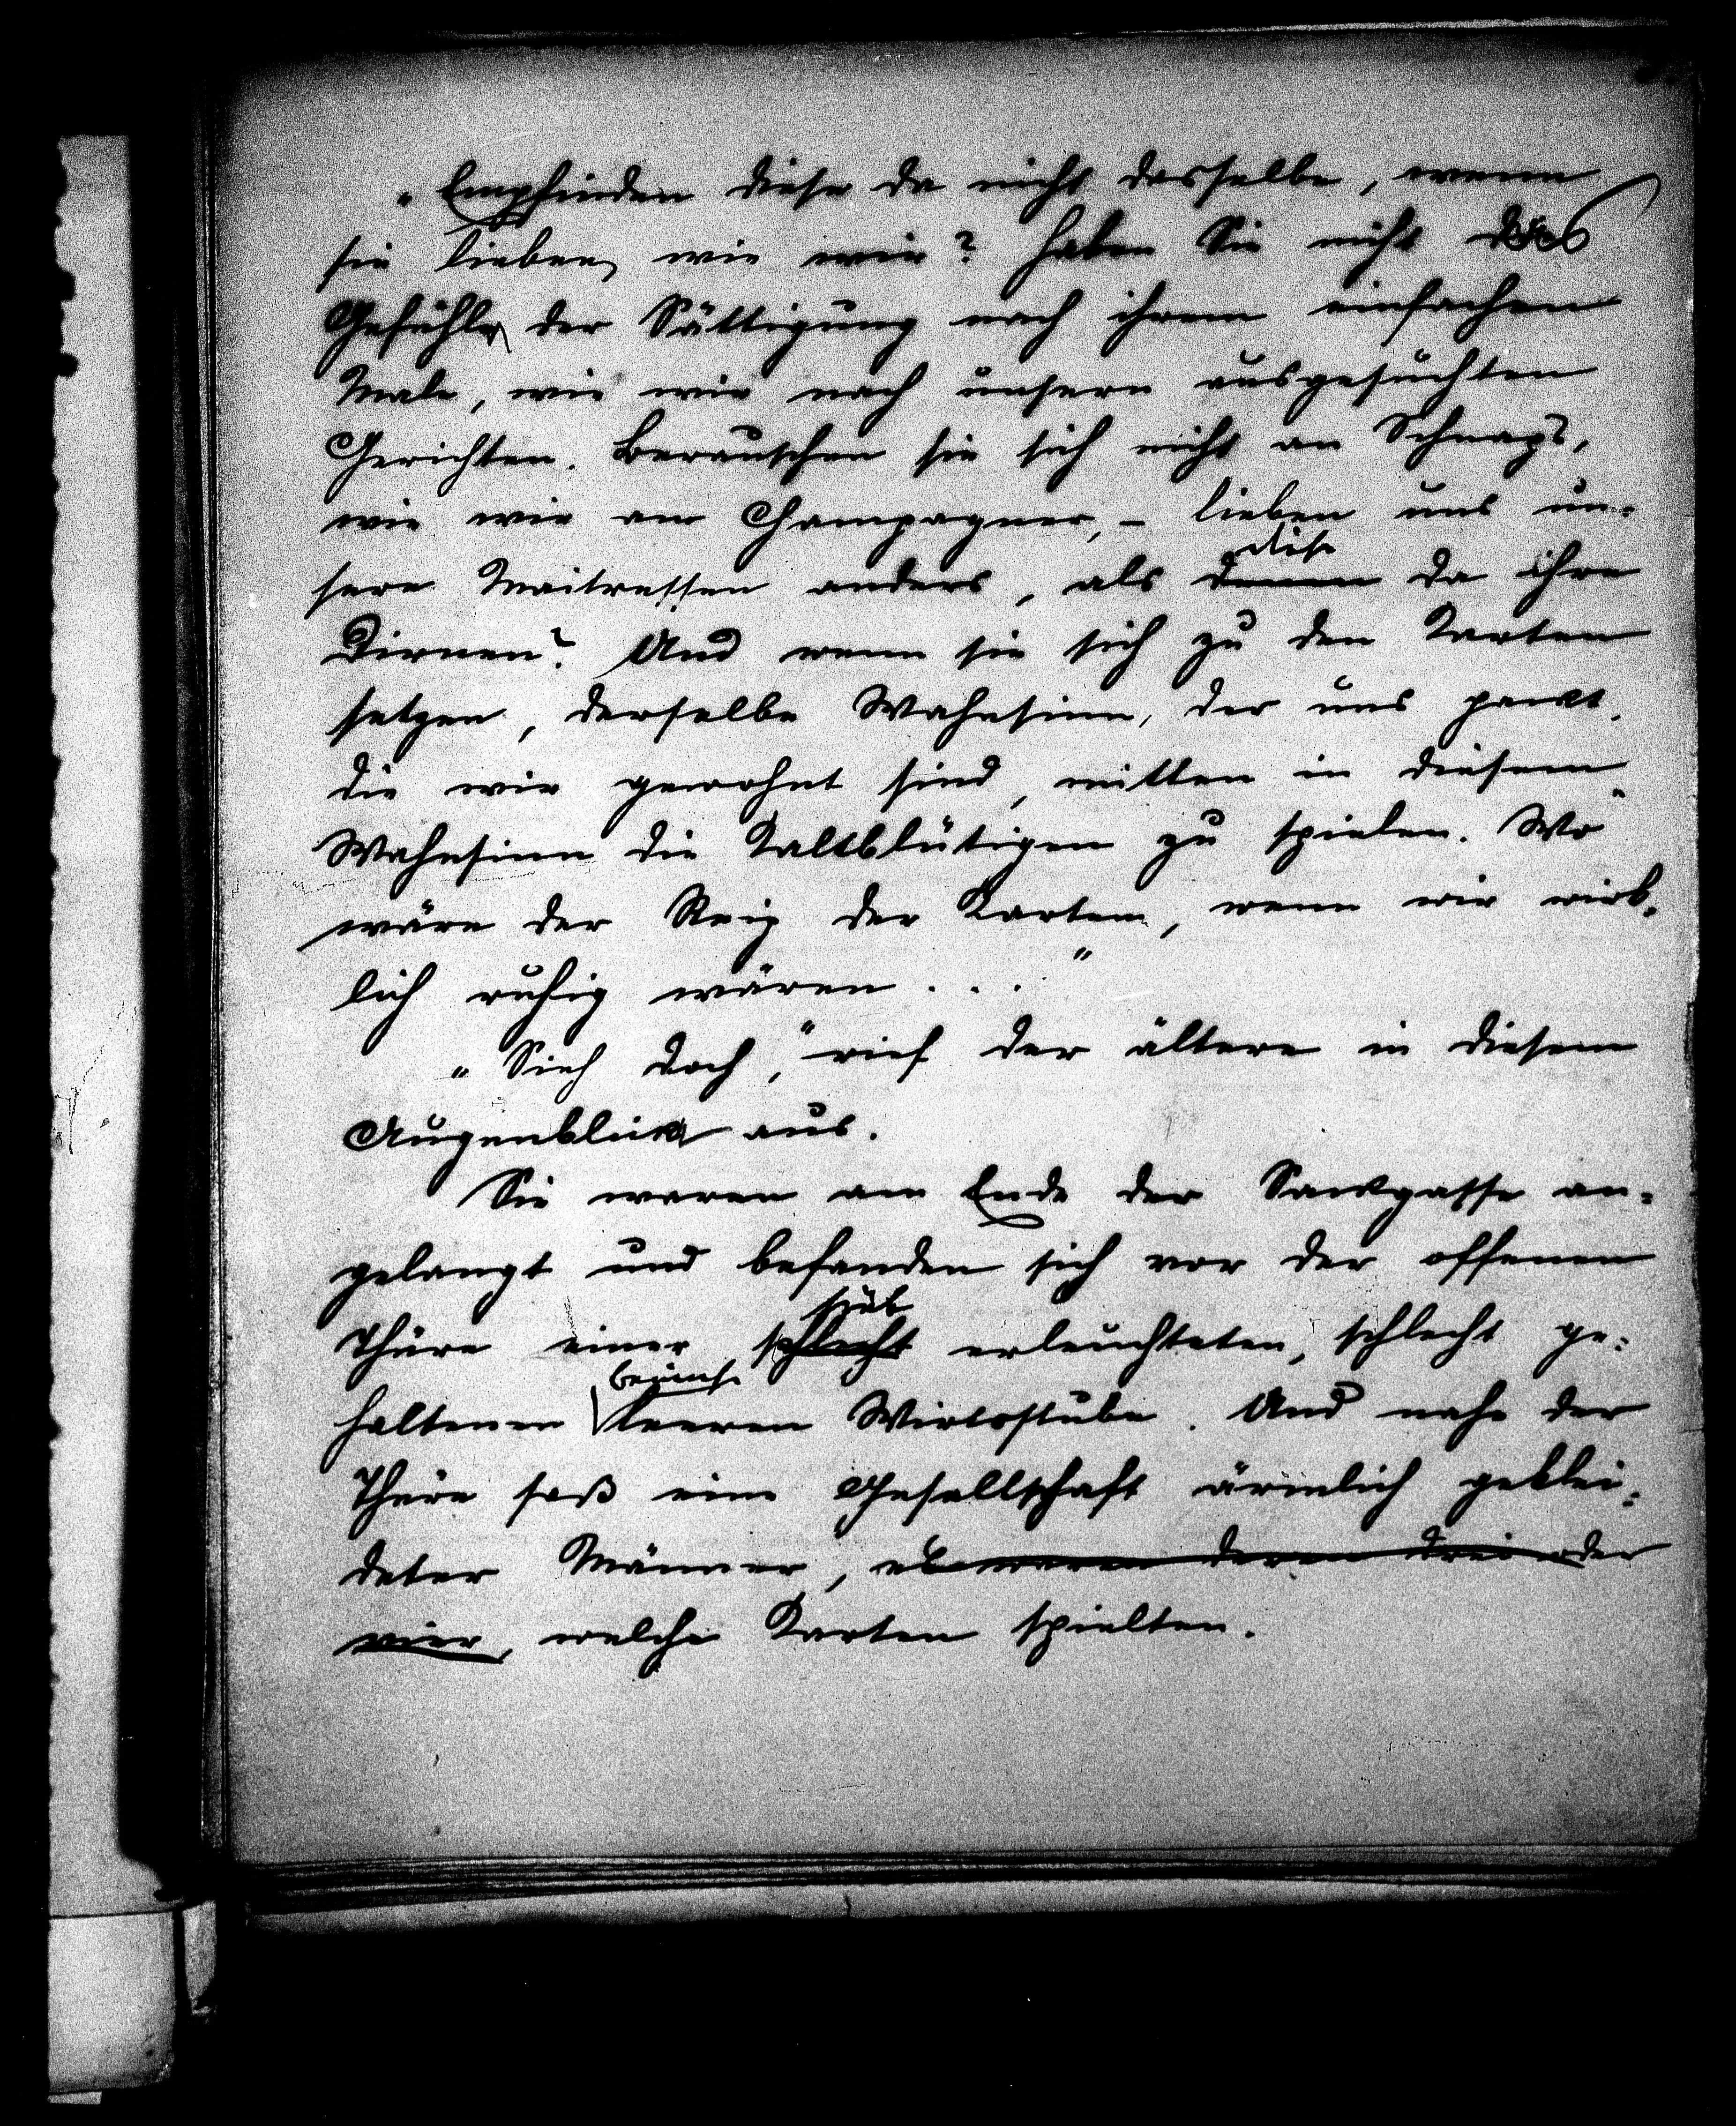 „Empfinden diese da nicht dasselbe, wenn
sie lieben, wie wir? Haben Sie nicht das
Gefühl der Sättigung nach ihrem einfachen
Male, wie wir nach unsern ausgesuchten
Gerichten. Berauschen sie sich nicht an Schnaps,
wie wir am Champagner, – lieben uns un-
diese
sere Maitressen anders, als denen da ihre
Dirnen? Und wenn sie sich zu den Karten
setzen, derselbe Wahnsinn, der uns packt,
die wir gewohnt sind, mitten in diesem
Wahnsinn die Kaltblütigen zu spielen. Wo
wäre der Reiz der Karten, wenn wir wirk-
lich ruhig wären . . .“
„Sieh doch,“ rief der ältere in diesem
Augenblick aus.
Sie waren am Ende der Sackgasse an-
gelangt und befanden sich vor der offenen
trüb
Thüre einer schlecht erleuchteten, schlecht ge-
beinah
haltenen leeren Wirtsstube. Und nahe der
Thüre saß eine Gesellschaft ärmlich geklei-
deter Männer, es waren deren drei oder
vier, welche Karten spielten.